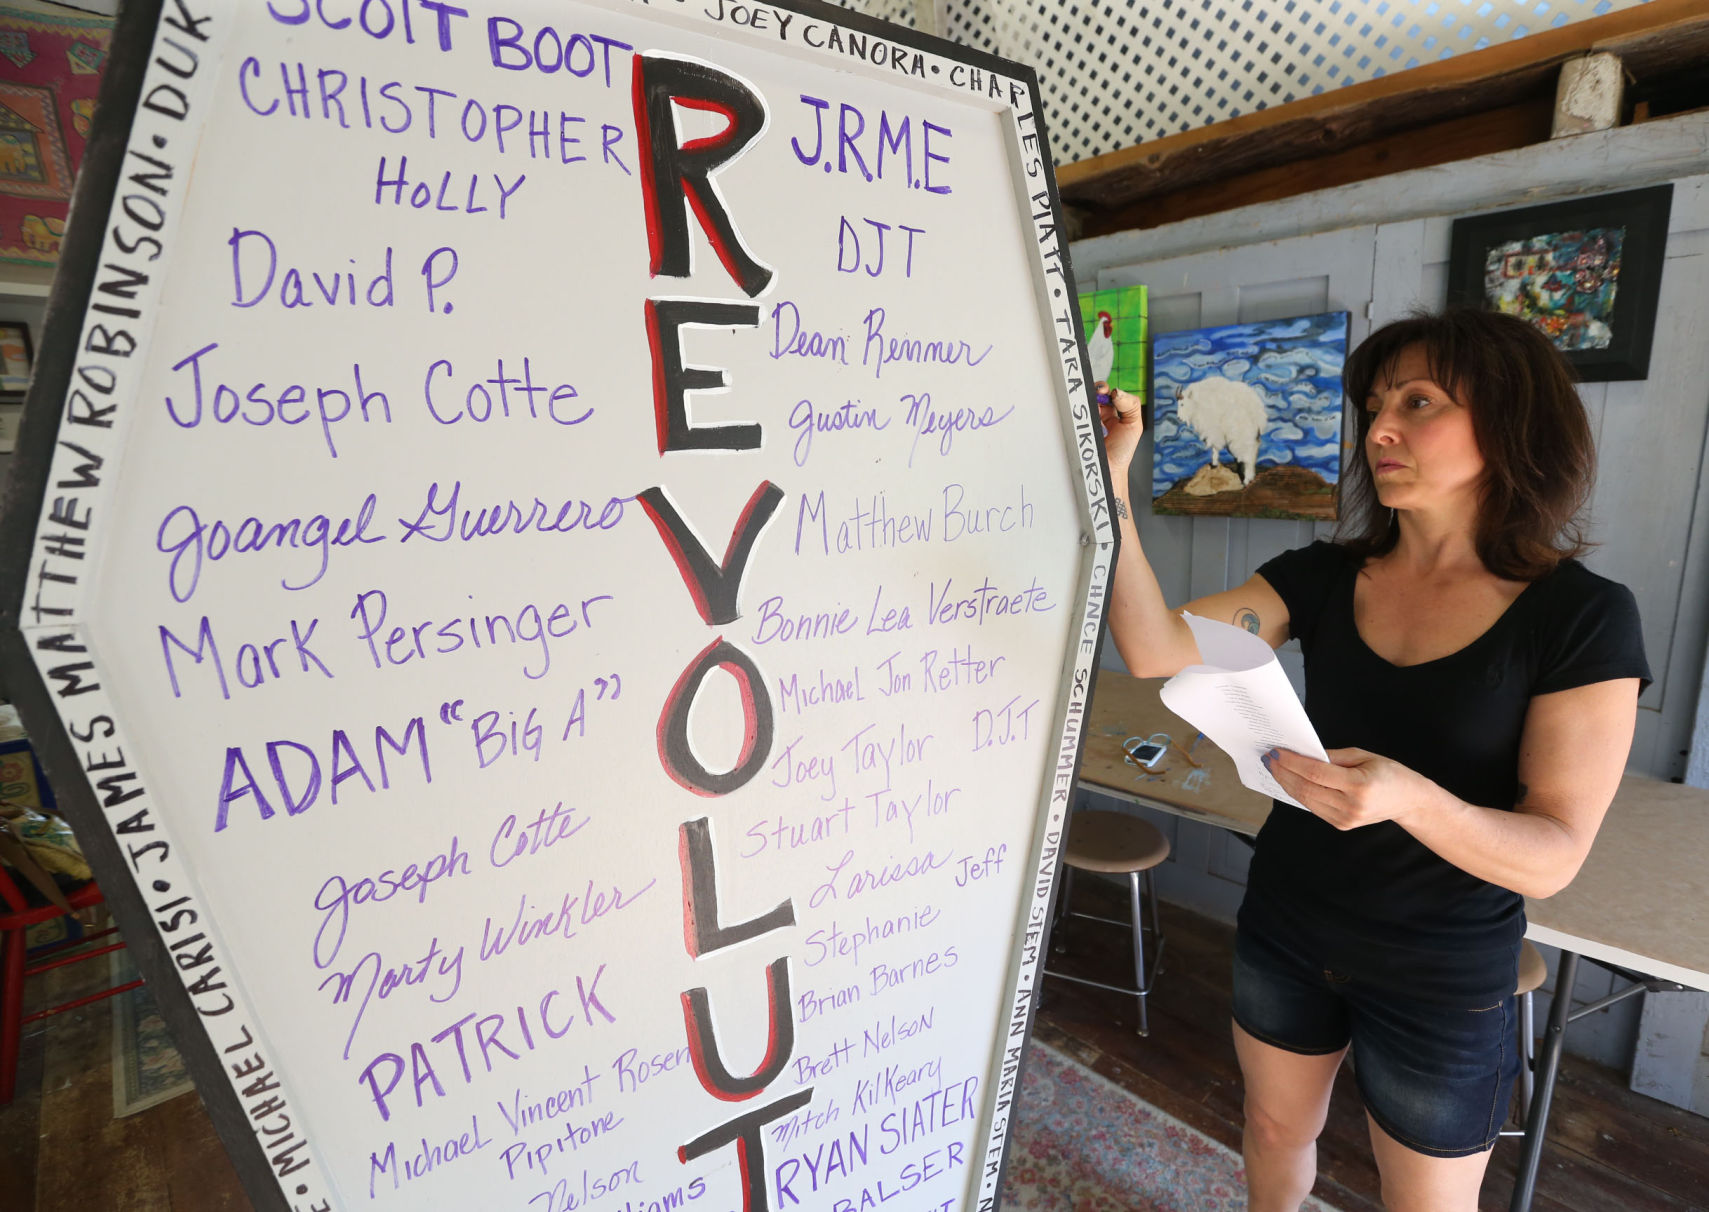 SCOTT BOOT
CHRISTOPHER
HOLLY
David P.
Joseph Cotte
Joangel Guerrero
Mark Persinger
ADAM "BiG A"
Joseph Cotte
Marty Winkler
PATRICK
Michael Vincent Rosen
Pipitone
Nelson
REVOLUT
J.R.M.E
DJT
Dean Reinner
Justin Meyers
Matthew Burch
Bonnie Lea Verstraete
Michael Jon Retter
Joey Taylor D.J.T
Stuart Taylor
Larissa Jeff
Stephanie
Brian Barnes
Brett Nelson
Mitch Kilkeary
RYAN SLATER
BALSER
• MICHAEL CARISI • JAMES MATTHEW ROBINSON • DUK
JOEY CANORA • CHARLES PIATT • TARA SIKORSKI • CHNCE SCHUMMER • DAVID STEM • ANN MARIA STEM •